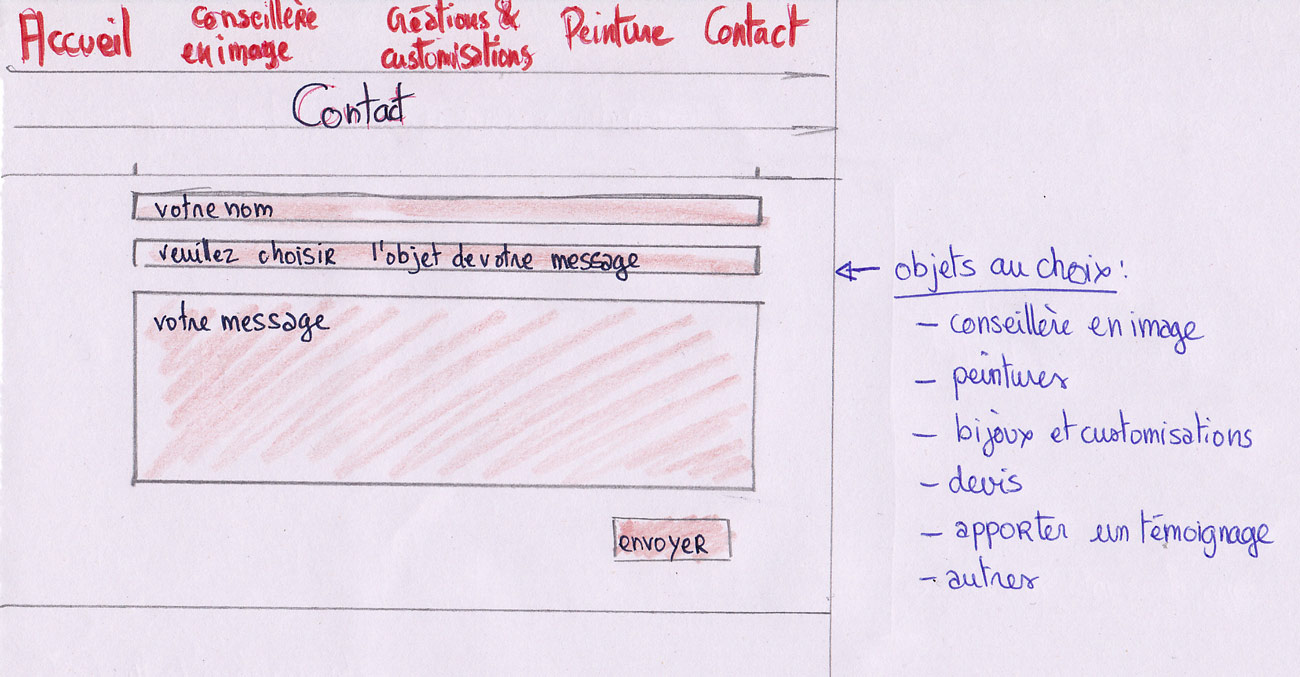 Accueil
Conseillère
en image
Créations &
customisations
Peinture
Contact
Contact
votre nom
veuillez choisir l'objet de votre message
votre message
envoyer
objets au choix :
- conseillère en image
- peintures
- bijoux et customisations
- devis
- apporter un témoignage
- autres